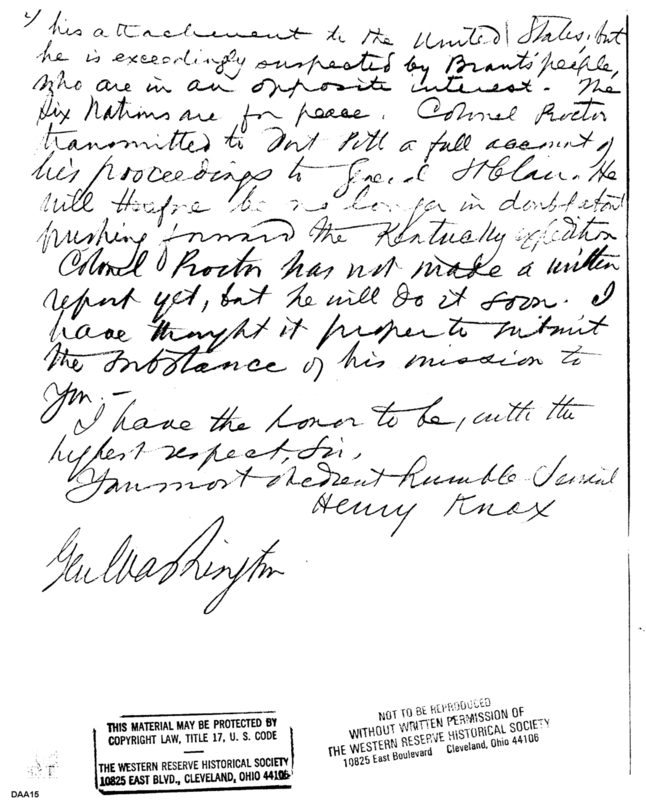 his attachment to the United States, but
he is exceedingly suspected by Brant's people,
who are in an opposite interest. The
Six Nations are for peace. Colonel Proctor
transmitted to Fort Pitt a full account of
his proceedings to General St Clair. He
will be no longer in doubt about
pushing forward the Kentucky expedition
Colonel Proctor has not made a written
report yet, but he will do it soon. I
have thought it proper to submit
the substance of his mission to
you. -
I have the honor to be, with the
highest respect, Sir,
Your most obedient humble Servant
Henry Knox
Gen Washington
THIS MATERIAL MAY BE PROTECTED BY
COPYRIGHT LAW, TITLE 17, U. S. CODE
THE WESTERN RESERVE HISTORICAL SOCIETY
10825 EAST BLVD., CLEVELAND, OHIO 44106
NOT TO BE REPRODUCED
WITHOUT WRITTEN PERMISSION OF
THE WESTERN RESERVE HISTORICAL SOCIETY
10825 East Boulevard Cleveland, Ohio 44106
DAA15